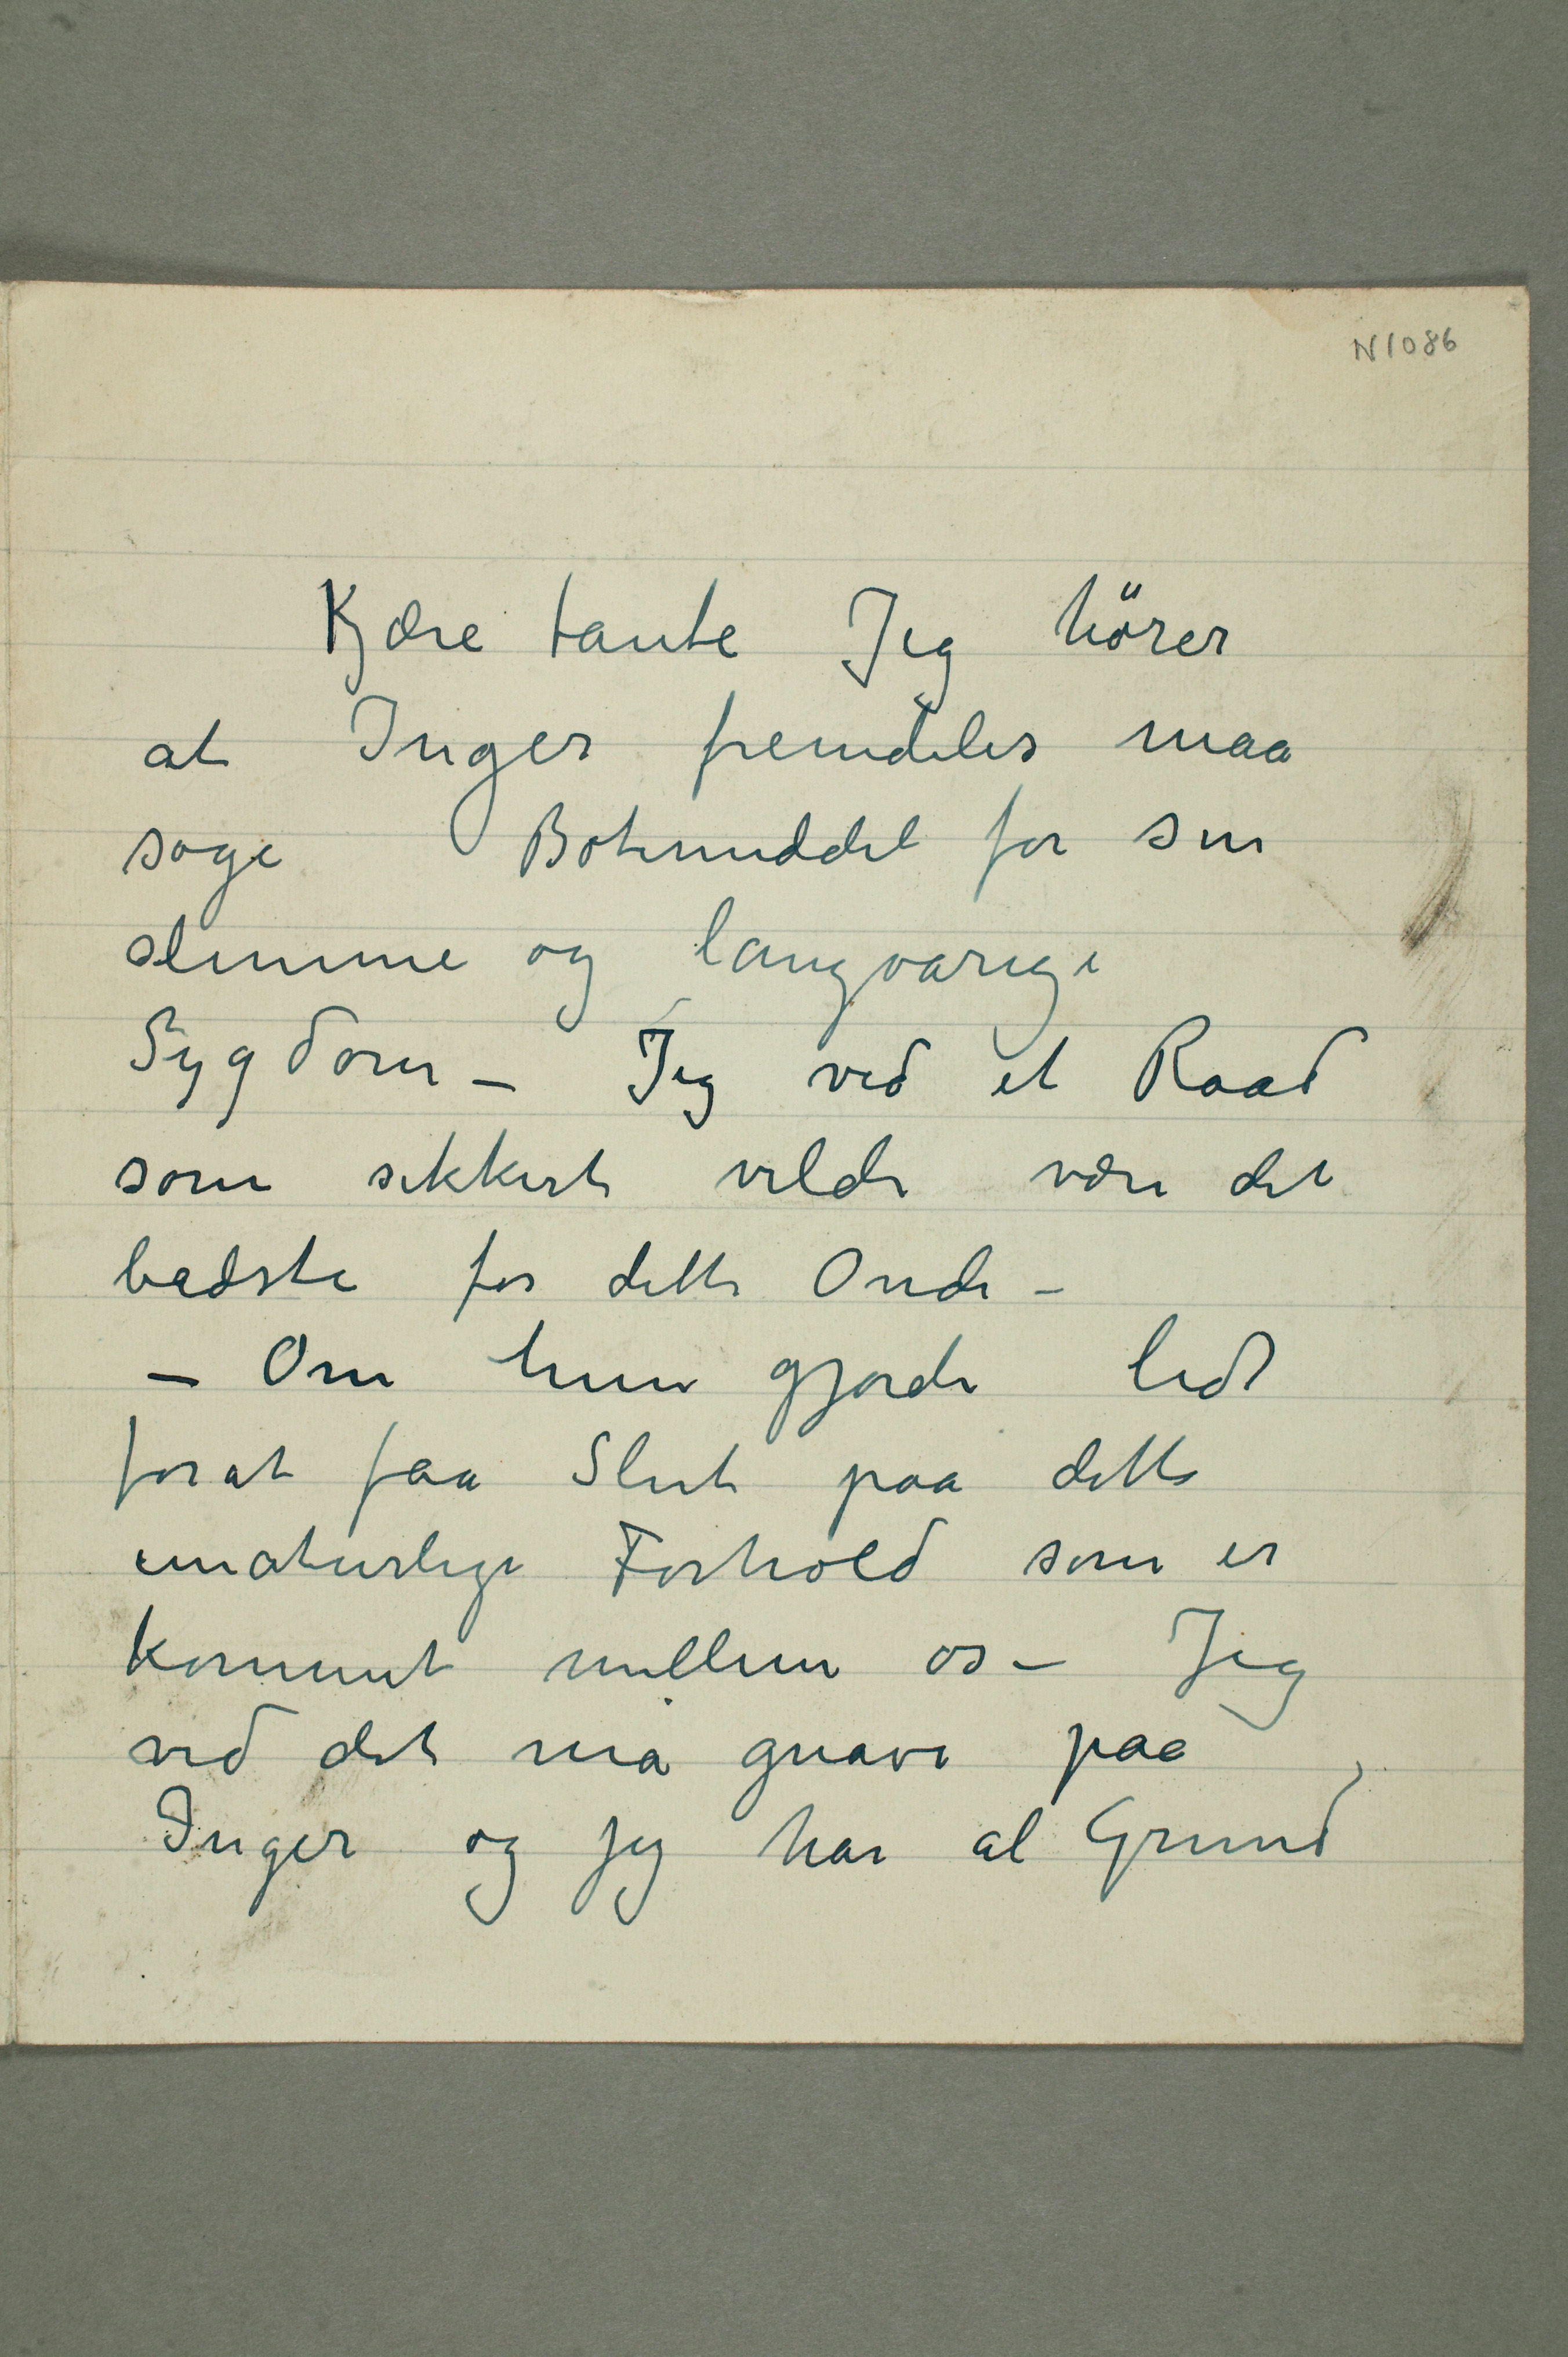 N 1086
Kjære tante Jeg hörer
at Inger fremdeles maa
søge Botemiddel for sin
slemme og langvarige
Sygdom – Jeg ved et Raad
som sikkert vilde være det
bedste for dette Onde –
– Om hun gjorde lidt
forat faa Slut paa dette
unaturlige Forhold som er
kommet mellem os – Jeg
ved det må gnave paa
Inger og jeg har al Grund